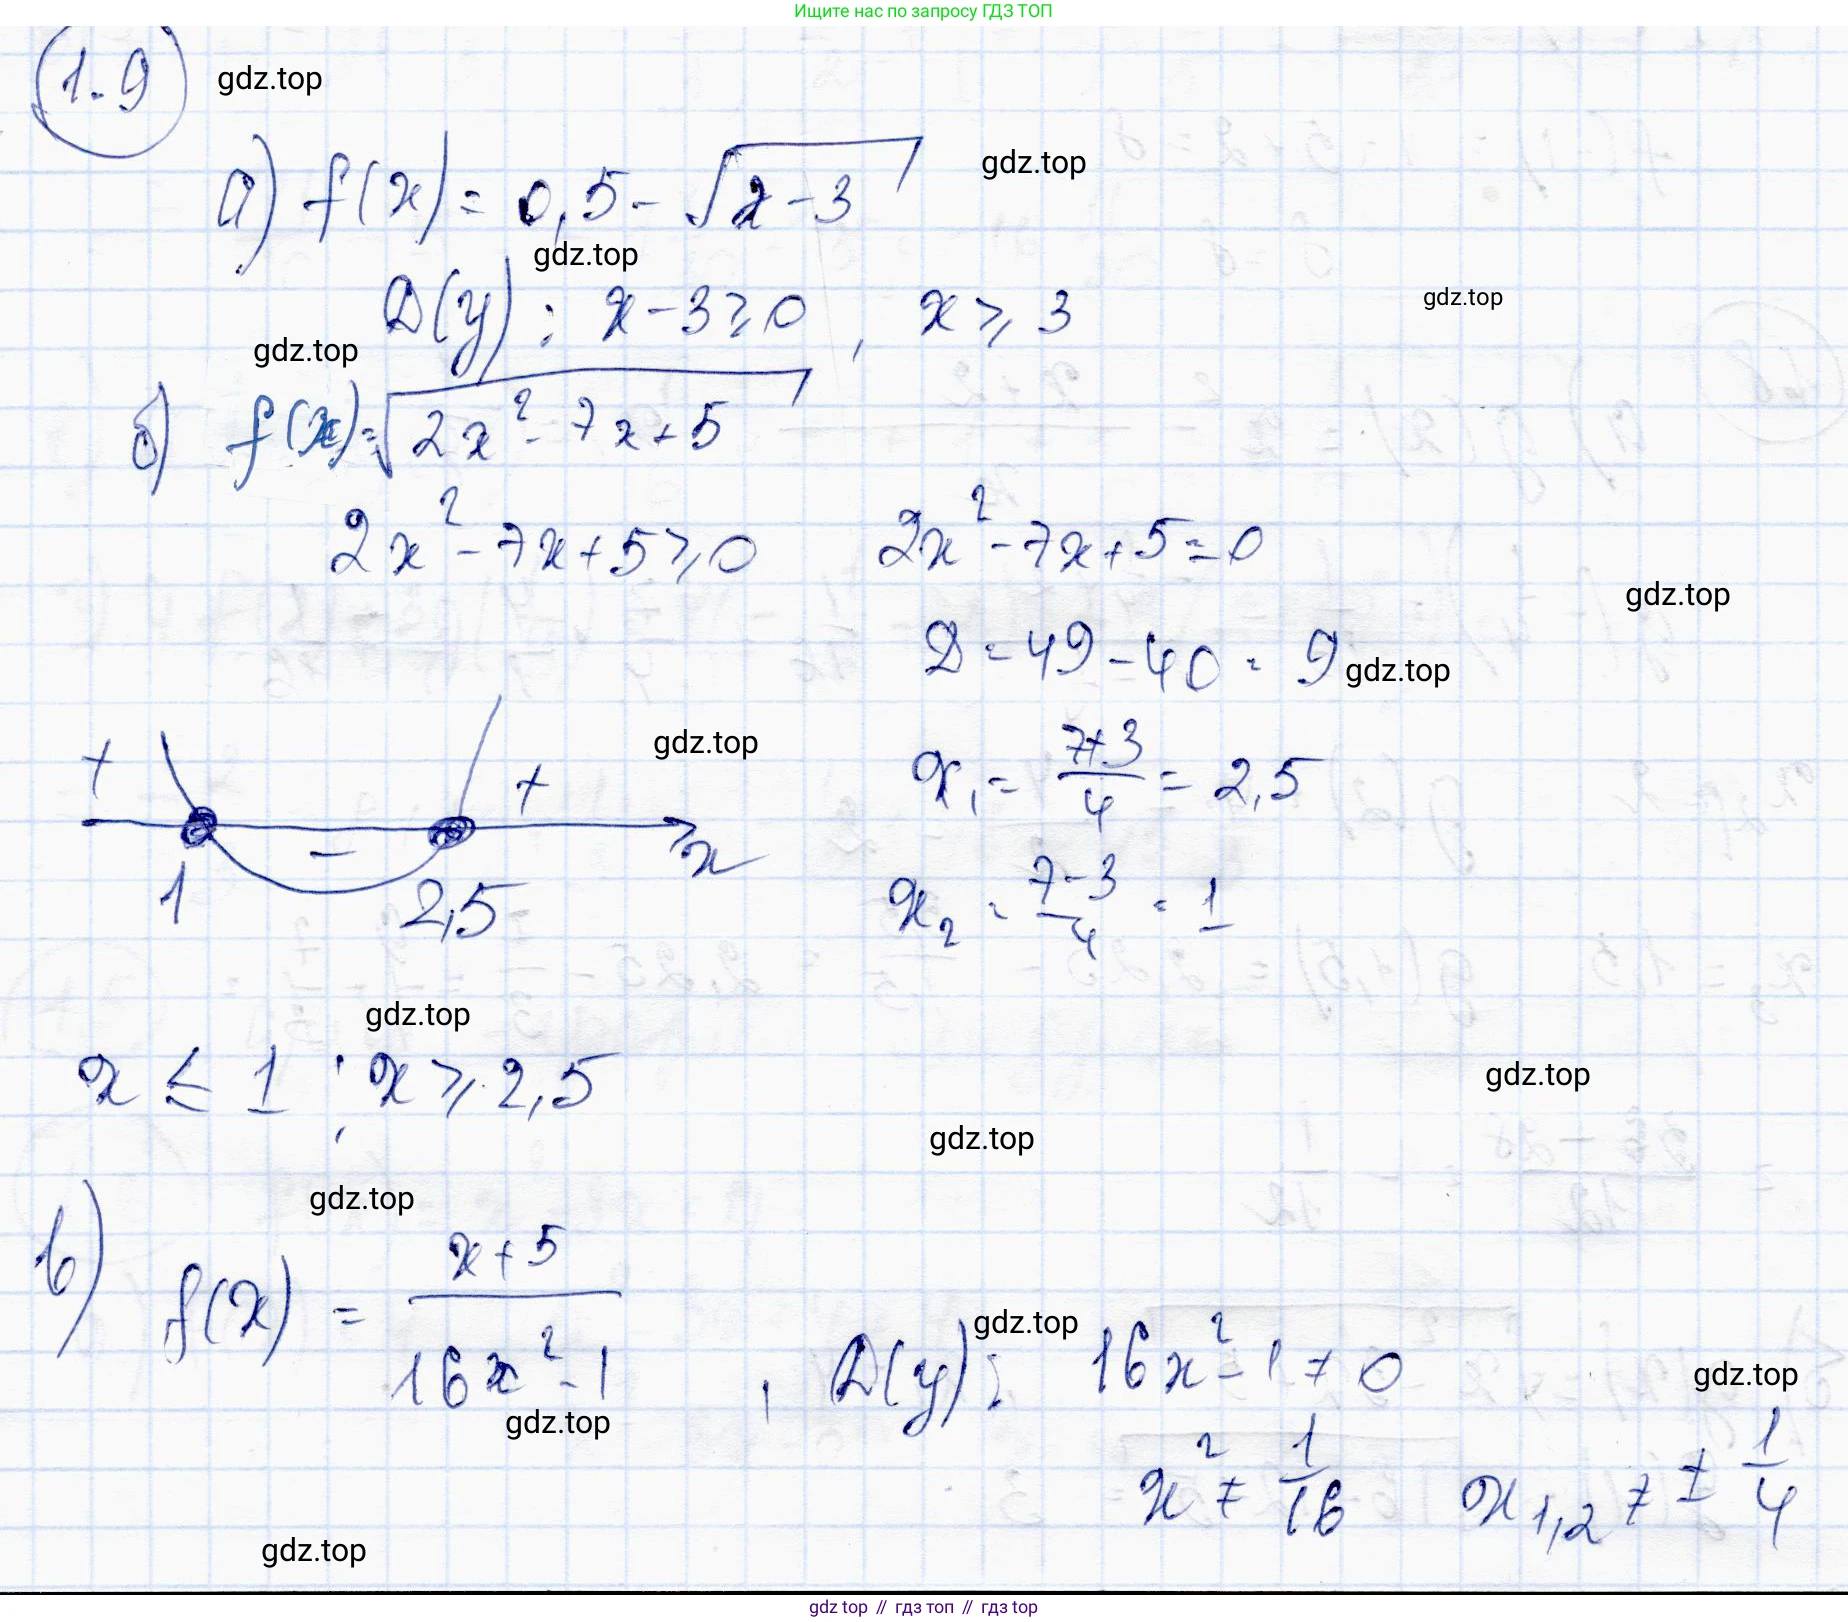 Ищите нас по запросу ГДЗ ТОП
1.9 gdz.top
а) f(x) = 0,5 - √(x - 3) gdz.top
gdz.top
D(y): x - 3 ≥ 0, x ≥ 3 gdz.top
gdz.top
б) f(x) = √(2x² - 7x + 5)
2x² - 7x + 5 ≥ 0 2x² - 7x + 5 = 0
gdz.top
D = 49 - 40 = 9 gdz.top
gdz.top
x₁ = (7+3)/4 = 2,5
+ - + x
1 2,5
x₂ = (7-3)/4 = 1
gdz.top
x ≤ 1 ; x ≥ 2,5 gdz.top
gdz.top
gdz.top
в) f(x) = (x+5)/(16x² - 1), D(y): 16x² - 1 ≠ 0
gdz.top
gdz.top
gdz.top
x² ≠ 1/16 x₁,₂ ≠ ± 1/4
gdz.top
gdz top // гдз топ // гдз top